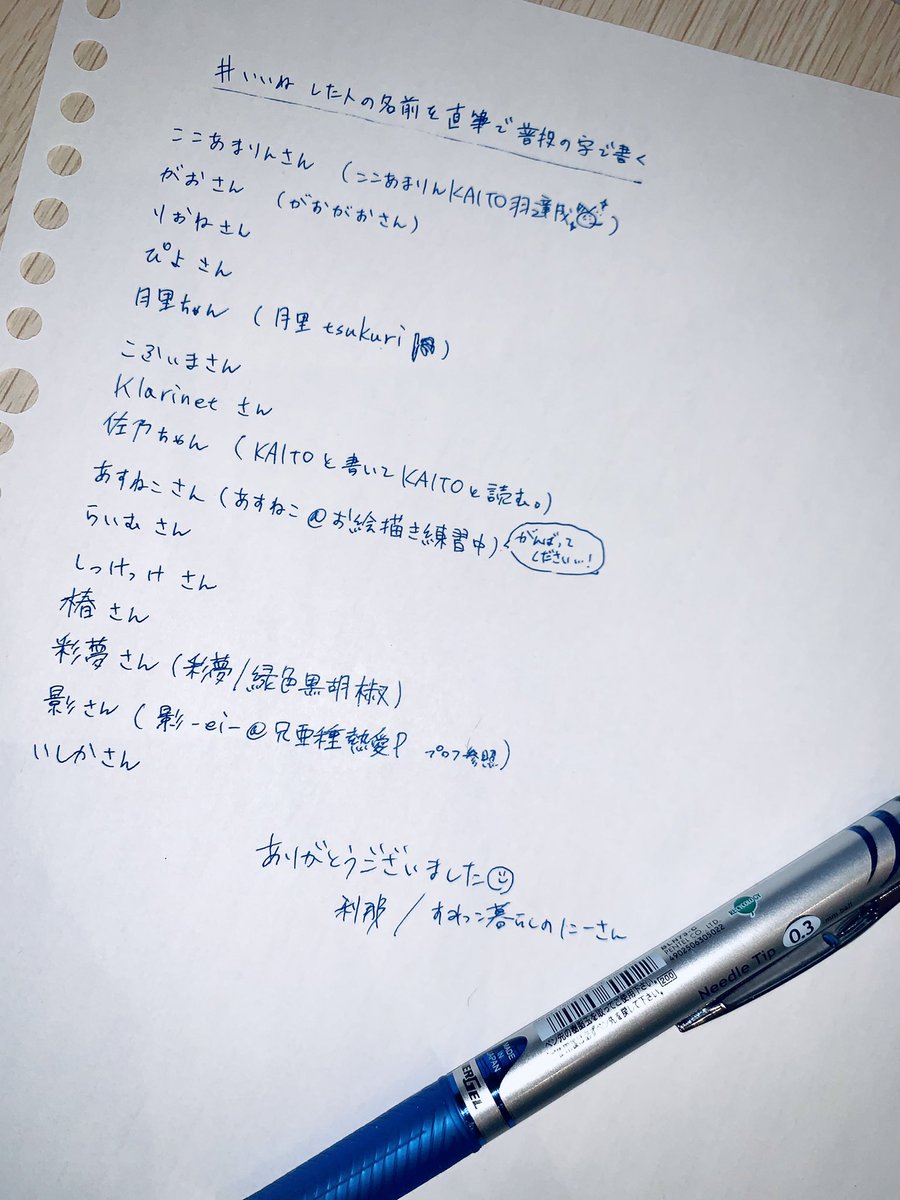 #いいねした人の名前を直筆で普段の字で書く
ここあまりんさん (ここあまりんKAITO羽達成)
がおさん (がおがおさん)
りおねさん
ぴよさん
月里ちゃん (月里 tsukuri)
こぶいまさん
Klarinet さん
佐乃ちゃん (KAITOと書いてKAITOと読む。)
あすねこさん (あすねこ@お絵描き練習中) がんばってくださいい!
らいむさん
しっけっけさん
椿さん
彩夢さん (彩夢/緑色黒胡椒)
影さん (影-ei-@兄亜種熱愛P プロフ参照)
いしかさん
ありがとうございました
利那 / すねっこ暮らしのにーさん
RECYCOLOGY
BLN73-C
PENTEL CO., LTD.
4902506305022
200
Needle Tip 0.3 mm ball
MADE IN JAPAN
ERGEL